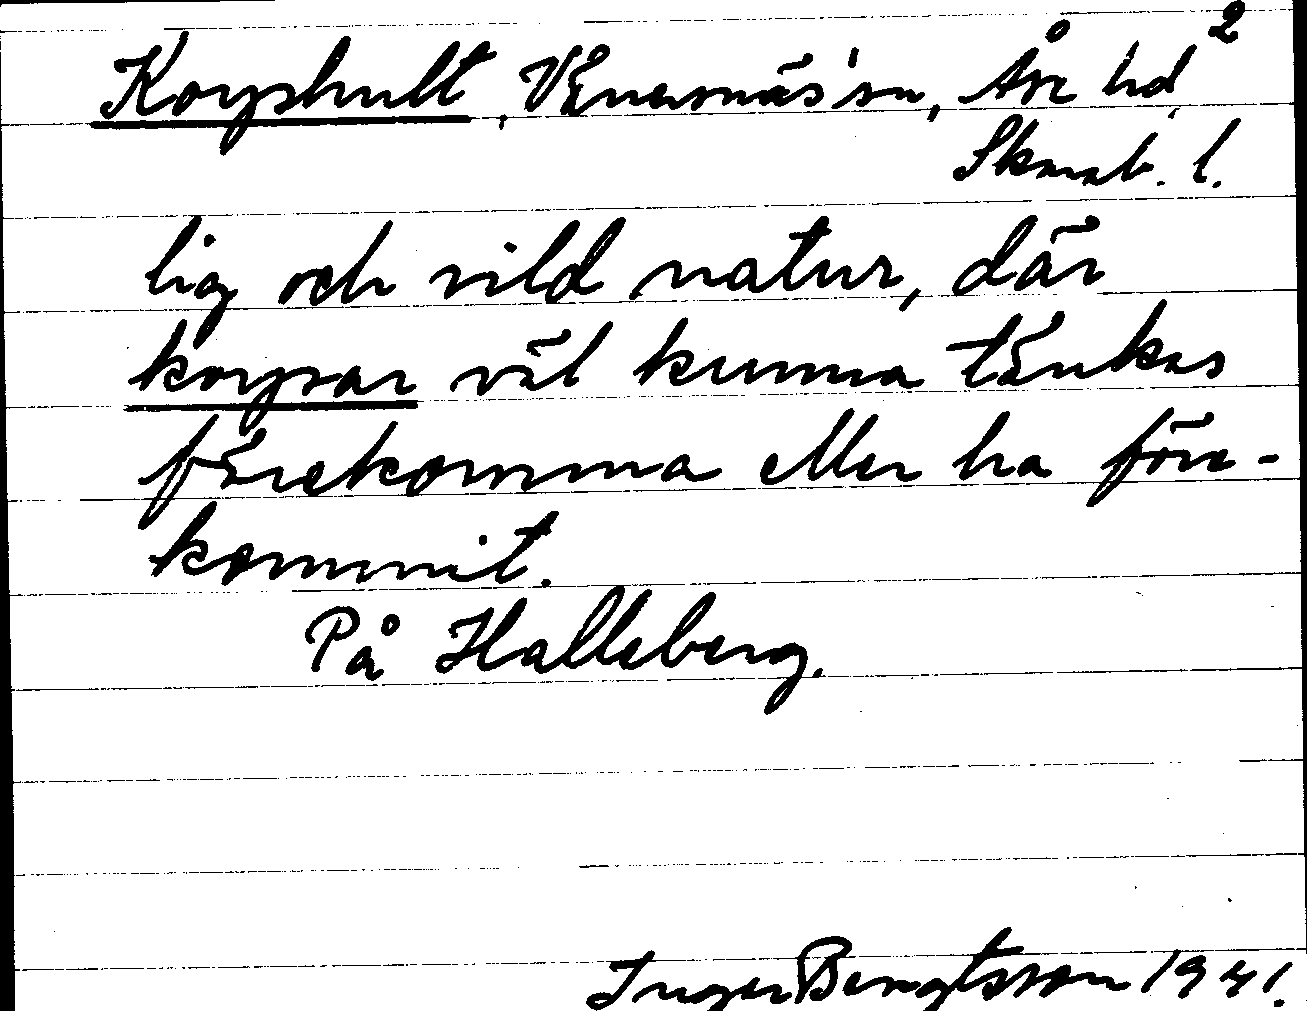 Korpshult, Vänersnäs' sn, Åse hd, 2
Skarab. l.
lig och vild natur, där
korpar väl kunna tänkas
förekomma eller ha före-
kommit.
På Halleberg.
Inger Bengtsson 1941.